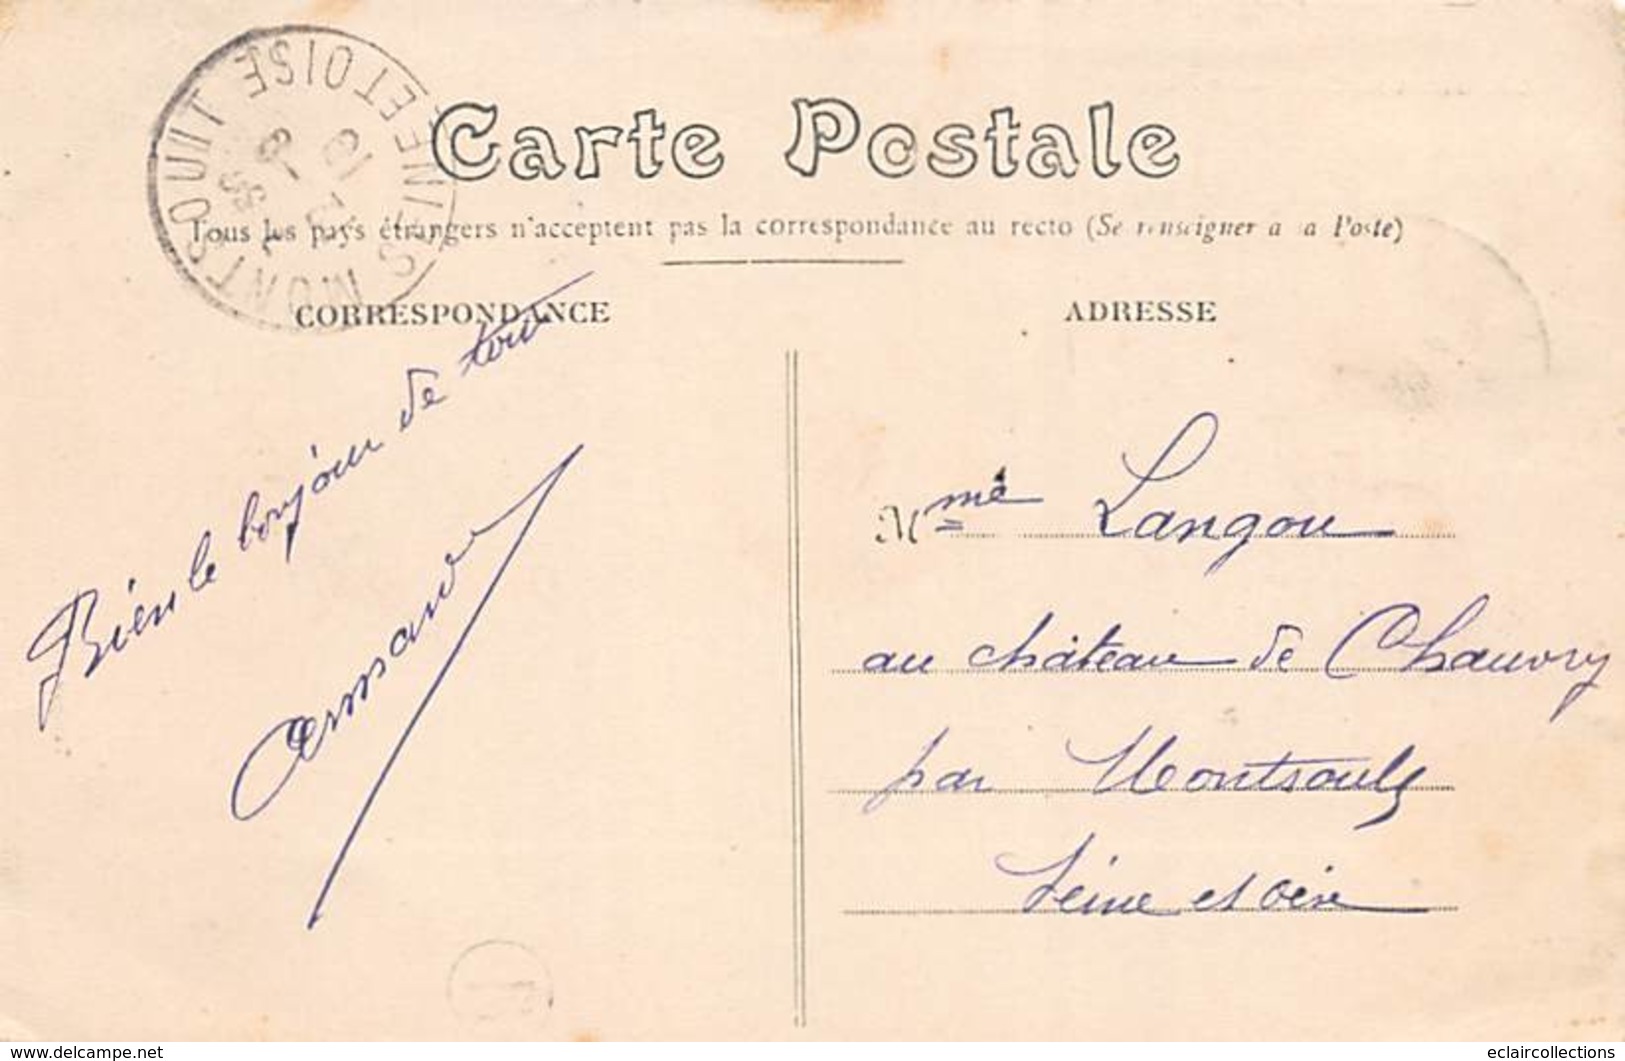 MONTSOULT SEINE-ET-OISE
Carte Postale
Tous les pays étrangers n'acceptent pas la correspondance au recto (Se renseigner a la Poste)
CORRESPONDANCE
ADRESSE
Bien le bonjour de tous
Armand
Mme Langou
au château de Chauvry
par Montsoult
Seine et Oise
www.delcampe.net
eclaircollections